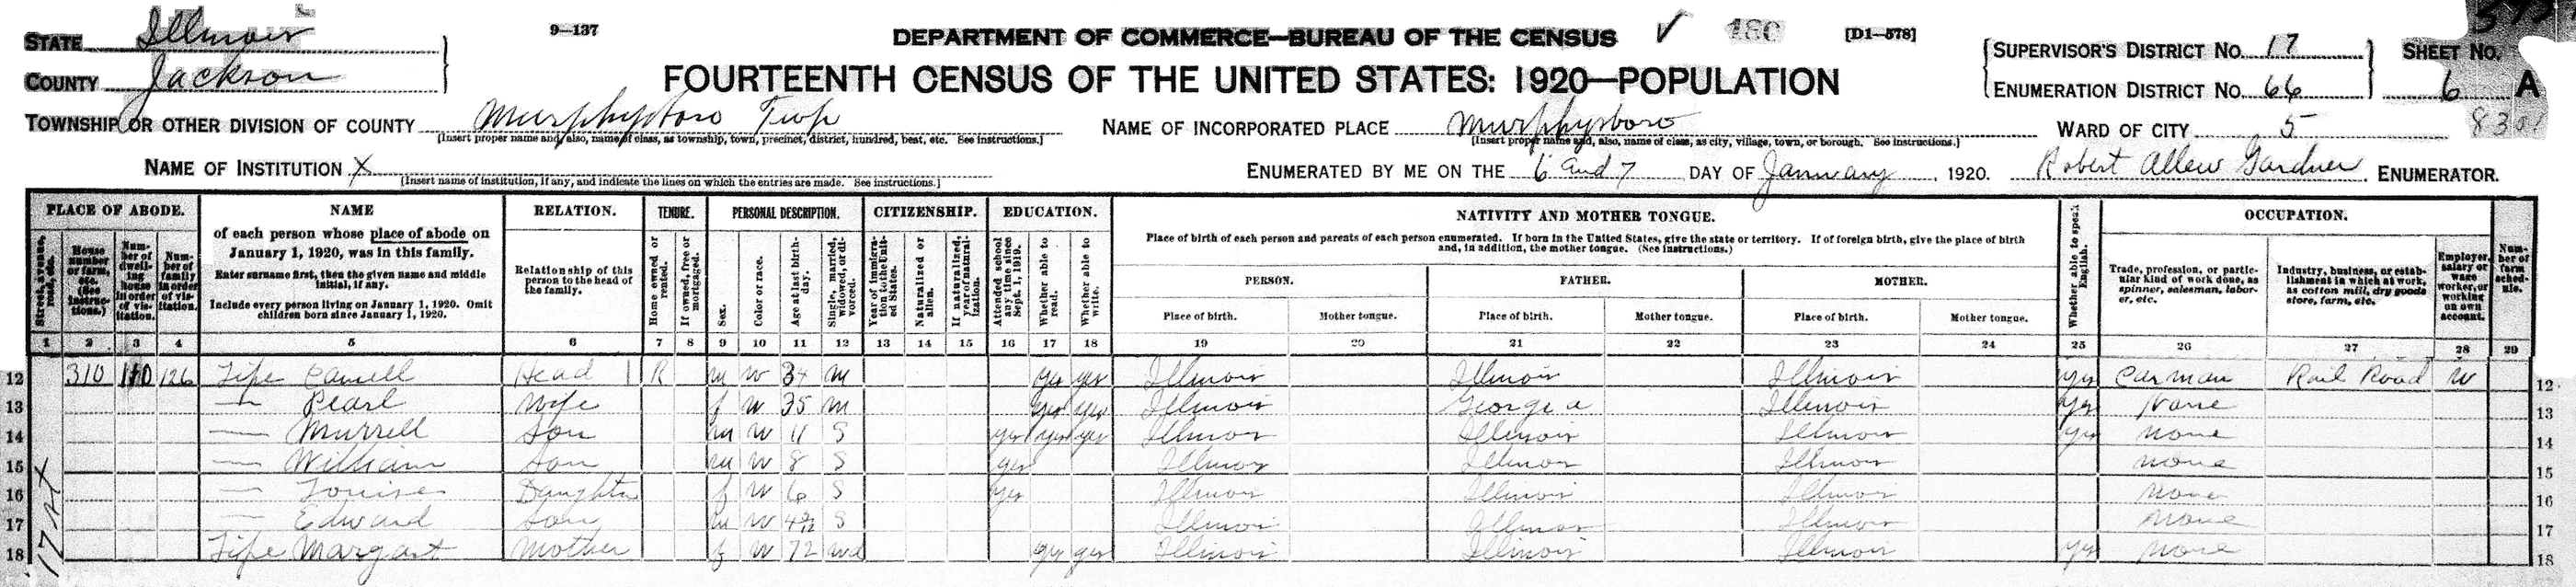 9—137
STATE Illinois
COUNTY Jackson
DEPARTMENT OF COMMERCE—BUREAU OF THE CENSUS ✓ 180 [D1—578]
FOURTEENTH CENSUS OF THE UNITED STATES: 1920—POPULATION
SUPERVISOR'S DISTRICT No. 17
ENUMERATION DISTRICT No. 66
SHEET No. 6 A
TOWNSHIP OR OTHER DIVISION OF COUNTY Murphysboro Twp
[Insert proper name and, also, name of class, as township, town, precinct, district, hundred, beat, etc. See instructions.]
NAME OF INCORPORATED PLACE Murphysboro
[Insert proper name and, also, name of class, as city, village, town, or borough. See instructions.]
WARD OF CITY 5
NAME OF INSTITUTION X
[Insert name of institution, if any, and indicate the lines on which the entries are made. See instructions.]
ENUMERATED BY ME ON THE 6 and 7 DAY OF January, 1920. Robert Allen Gardner, ENUMERATOR.
PLACE OF ABODE. NAME RELATION. TENURE. PERSONAL DESCRIPTION. CITIZENSHIP. EDUCATION. NATIVITY AND MOTHER TONGUE. OCCUPATION.
Street, avenue, road, etc.
House number or farm, etc. (See instructions.)
Number of dwelling house in order of visitation.
Number of family in order of visitation.
of each person whose place of abode on
January 1, 1920, was in this family.
Enter surname first, then the given name and middle
initial, if any.
Include every person living on January 1, 1920. Omit
children born since January 1, 1920.
Relationship of this
person to the head of
the family.
Home owned or rented.
If owned, free or mortgaged.
Sex.
Color or race.
Age at last birthday.
Single, married, widowed, or divorced.
Year of immigration to the United States.
Naturalized or alien.
If naturalized, year of naturalization.
Attended school any time since Sept. 1, 1919.
Whether able to read.
Whether able to write.
Place of birth of each person and parents of each person enumerated. If born in the United States, give the state or territory. If of foreign birth, give the place of birth
and, in addition, the mother tongue. (See instructions.)
PERSON. FATHER. MOTHER.
Place of birth. Mother tongue. Place of birth. Mother tongue. Place of birth. Mother tongue.
Whether able to speak English.
Trade, profession, or particular kind of work done, as spinner, salesman, laborer, etc.
Industry, business, or establishment in which at work, as cotton mill, dry goods store, farm, etc.
Employer, salary or wage worker, or working on own account.
Number of farm schedule.
1 2 3 4 5 6 7 8 9 10 11 12 13 14 15 16 17 18 19 20 21 22 23 24 25 26 27 28 29
12 310 110 126 Tife Head 1 R m w 34 m yes yes Illinois Illinois Illinois yes Carman Rail Road W 12
13 — Pearl wife f w 35 m yes yes Illinois Georgia Illinois yes None 13
14 — Murrell Son m w 11 S yes yes yes Illinois Illinois Illinois yes none 14
15 — William Son m w 8 S yes Illinois Illinois Illinois none 15
16 — Louise Daughter f w 6 S yes Illinois Illinois Illinois none 16
17 — Edward Son m w S Illinois Illinois Illinois none 17
18 Tife Margart Mother f w 72 wd yes yes Illinois Illinois Illinois yes none 18